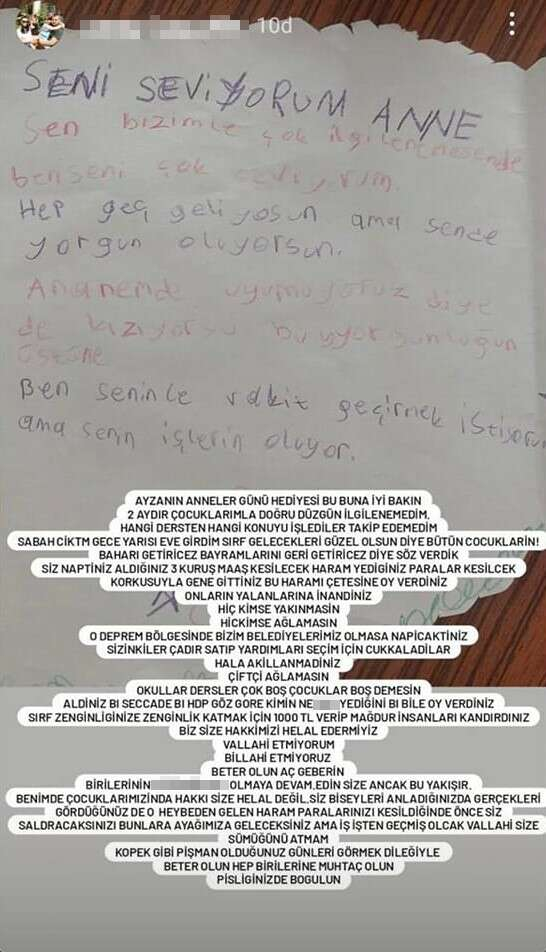 10d
SENİ SEVİYORUM ANNE
Sen bizimle çok ilgilenemesende
ben seni çok seviyorum.
Hep geç geliyosun ama sende
yorgun oluyorsun.
Ananemde uyumuyoruz diye
de kızıyorsu bu yorgunluğun
üstüne
Ben seninle vakit geçirmek istiyoru
ama senin işlerin oluyor.
AYZANIN ANNELER GÜNÜ HEDİYESİ BU BUNA İYİ BAKIN
2 AYDIR ÇOCUKLARIMLA DOĞRU DÜZGÜN İLGİLENEMEDİM,
HANGİ DERSTEN HANGİ KONUYU İŞLEDİLER TAKİP EDEMEDİM
SABAH CİKTM GECE YARISI EVE GİRDİM SIRF GELECEKLERİ GÜZEL OLSUN DİYE BÜTÜN COCUKLARIN!
BAHARI GETİRİCEZ BAYRAMLARINI GERİ GETİRİCEZ DİYE SÖZ VERDİK
SİZ NAPTİNİZ ALDIĞINIZ 3 KURUŞ MAAŞ KESİLECEK HARAM YEDİGİNİZ PARALAR KESİLCEK
KORKUSUYLA GENE GİTTİNİZ BU HARAMİ ÇETESİNE OY VERDİNİZ
ONLARIN YALANLARINA İNANDİNİZ
HİÇ KİMSE YAKINMASIN
HİCKİMSE AĞLAMASIN
O DEPREM BÖLGESİNDE BİZİM BELEDİYELERİMİZ OLMASA NAPİCAKTİNİZ
SİZİNKİLER ÇADIR SATIP YARDIMLARI SEÇİM İÇİN CUKKALADİLAR
HALA AKİLLANMADİNİZ
ÇİFTÇİ AĞLAMASIN
OKULLAR DERSLER ÇOK BOŞ ÇOCUKLAR BOŞ DEMESİN
ALDİNİZ BI SECCADE BI HDP GÖZ GORE KİMİN NE YEDİĞİNİ BI BILE OY VERDİNİZ
SIRF ZENGİNLİGİNİZE ZENGİNLİK KATMAK İÇİN 1000 TL VERİP MAĞDUR İNSANLARI KANDIRDINIZ
BİZ SİZE HAKKİMİZİ HELAL EDERMİYİZ
VALLAHİ ETMİYORUM
BİLLAHİ ETMİYORUZ
BETER OLUN AÇ GEBERİN
BİRİLERİNİN OLMAYA DEVAM,EDİN SİZE ANCAK BU YAKIŞIR,
BENİMDE ÇOCUKLARIMIZINDA HAKKI SİZE HELAL DEĞİL.SİZ BISEYLERİ ANLADIĞINIZDA GERÇEKLERİ
GÖRDÜĞÜNÜZ DE O HEYBEDEN GELEN HARAM PARALARINIZI KESİLDİĞİNDE ÖNCE SİZ
SALDRACAKSINIZI BUNLARA AYAĞIMIZA GELECEKSİNİZ AMA İŞ İŞTEN GEÇMİŞ OLCAK VALLAHİ SİZE
SÜMÜĞÜNÜ ATMAM
KOPEK GİBİ PİŞMAN OLDUĞUNUZ GÜNLERİ GÖRMEK DİLEĞİYLE
BETER OLUN HEP BİRİLERİNE MUHTAÇ OLUN
PISLİGİNİZDE BOGULUN